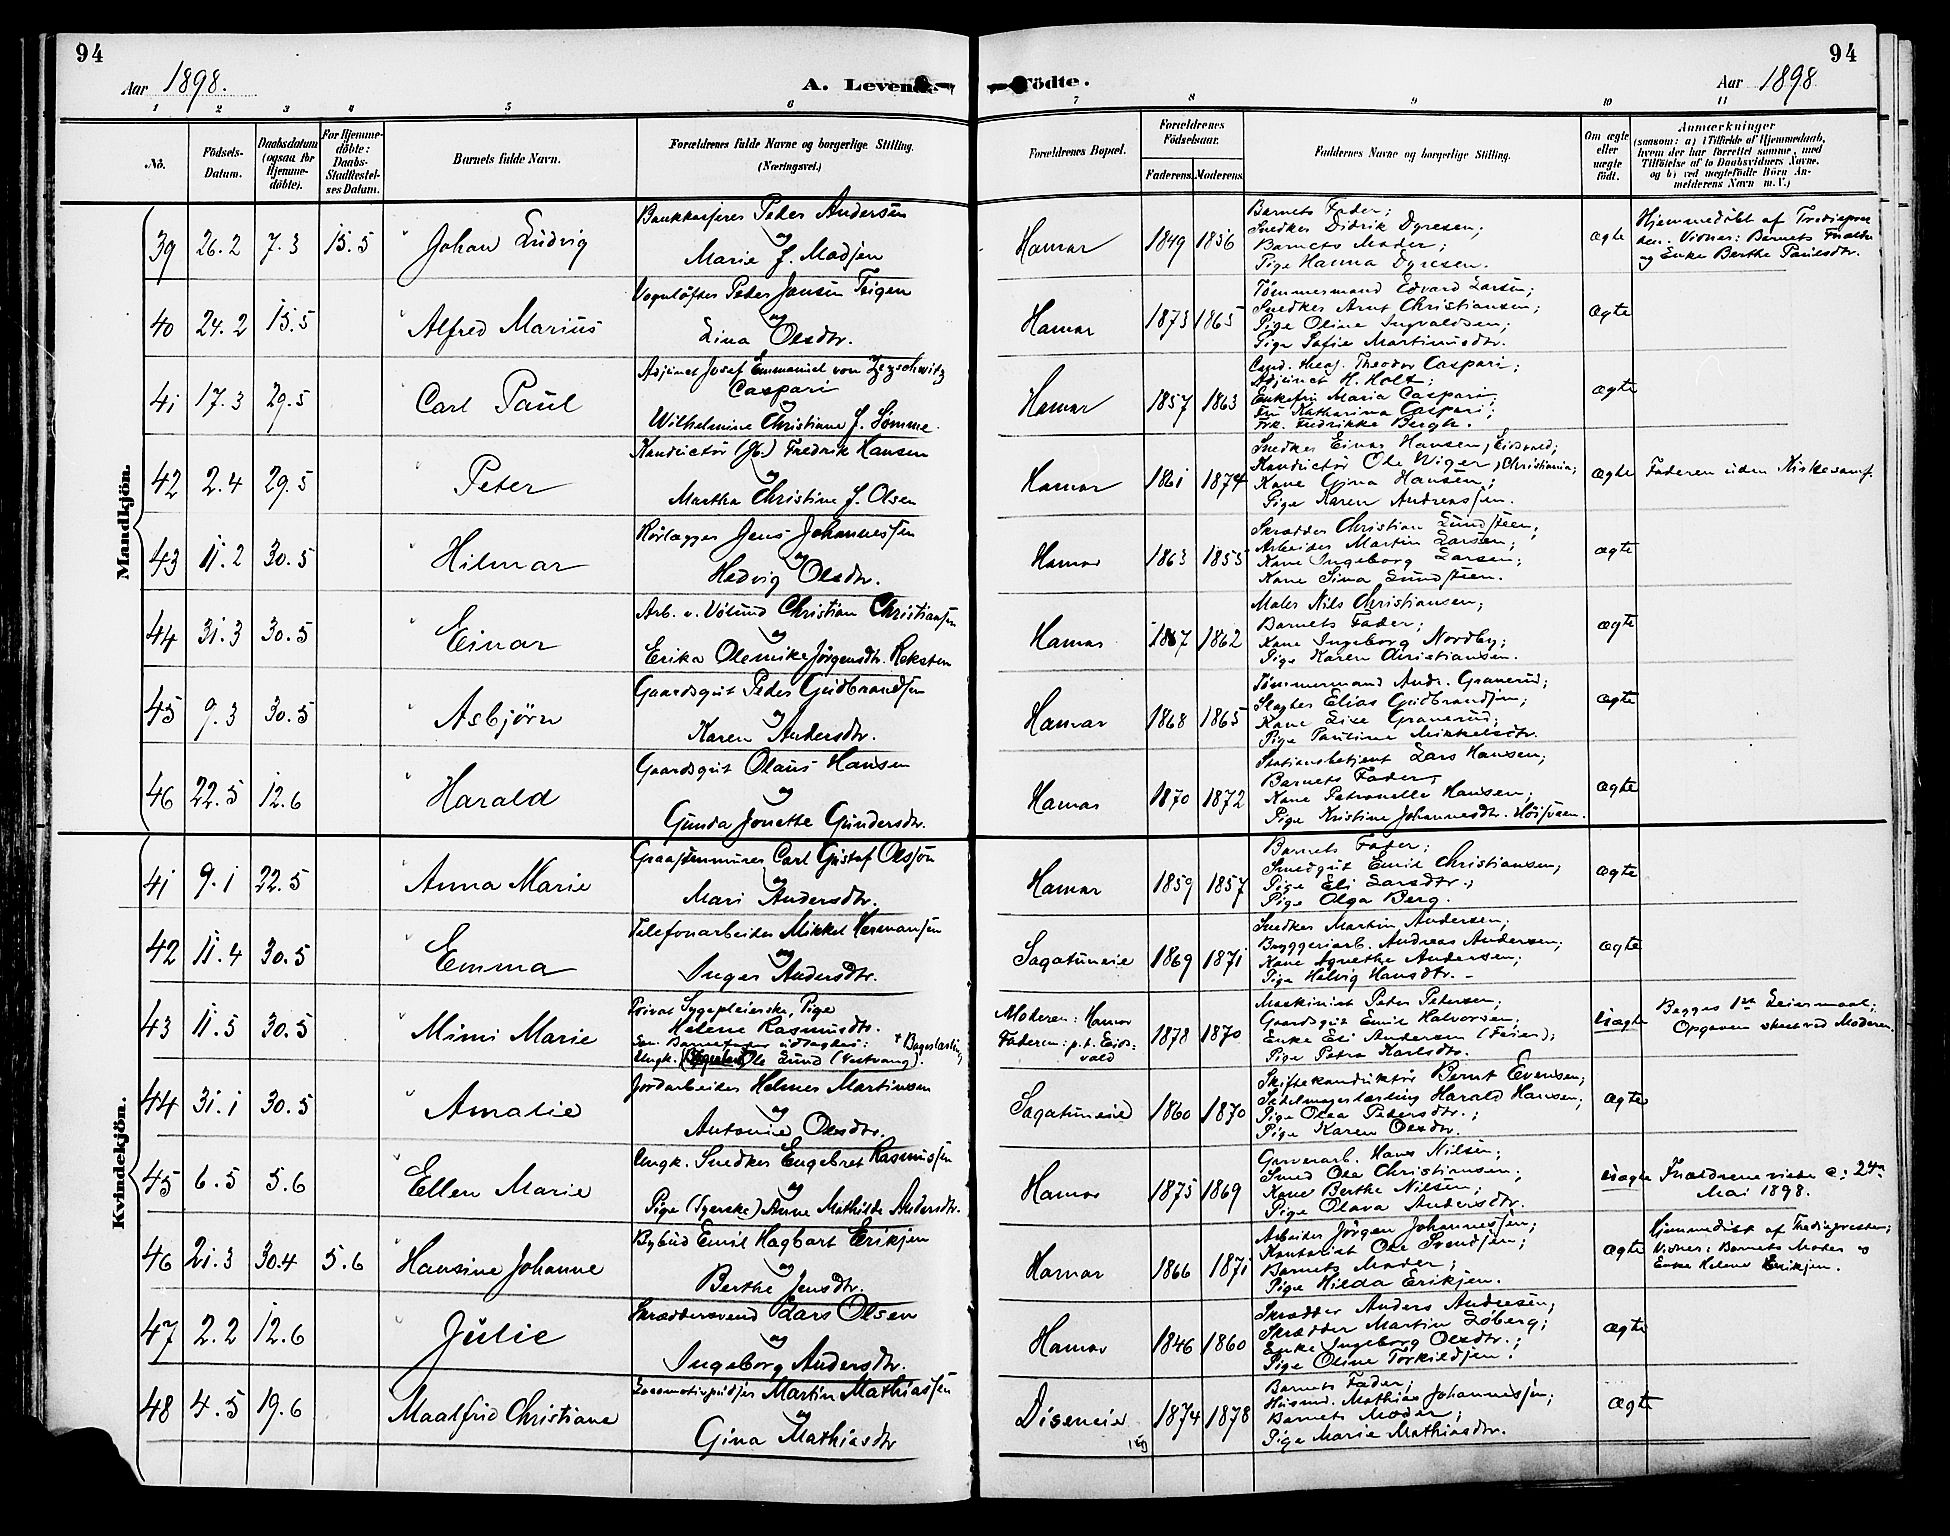 94
Aar 1898.
A. Levende
Födte.
94
Aar 1898
1 2 3 4 5 6 7 8 9 10 11
No.
Födsels-
Datum.
Daabsdatum
(ogsaa for
Hjemme-
döbte).
For Hjemme-
döbte:
Daabs-
Stadfæstel-
ses Datum.
Barnets fulde Navn.
Forældrenes fulde Navne og borgerlige Stilling.
(Næringsvei.)
Forældrenes Bopæl.
Forældrenes
Födselsaar.
Faderens. Moderens.
Faddernes Navne og borgerlige Stilling.
Om ægte
eller
uægte
födt.
Anmærkninger
(saasom: a) i Tilfælde af Hjemmedaab,
hvem der har forrettet samme, med
Tilföielse af to Daabsvidners Navne,
og b) ved uægtefödte Börn An-
melderens Navn m. V.)
Mandkjön.
39 26.2 7.3 15.5 Johan Ludvig
Bankkasserer Peder Andersen
og
Marie f. Madsen
Hamar 1849 1856
Barnets Fader;
Snedker Didrik Dyresen;
Barnets Moder;
Pige Hanna Dyresen.
ægte
Hjemmedöbt af
Vidner: Barnets
og Enke Berthe Paulsdtr.
40 24.2 15.5 Alfred Marius
Vognløfter Peder Jansen Teigen
og
Lina Olsdtr.
Hamar 1873 1865
Tømmermand Edvard Larsen;
Snedker Arnt Christiansen;
Pige Oline Ingvaldsen;
Pige Sofie Martinusdtr.
ægte
41 17.3 29.5 Carl Paul
Adjunct Josef Emmanuel von Zezschwitz
Caspari
og
Wilhelmine Christiane f. Sømme.
Hamar 1857 1863
Cand. theol. Theodor Caspari;
Adjunct H. Holt;
Enkefru Maria Caspari;
Fru Katharina Caspari;
Frk. Fredrikke Bergh.
ægte
42 2.4 29.5 Peter
Konductör (Jb.) Fredrik Hansen
og
Martha Christine f. Olsen
Hamar 1861 1874
Snedker Einar Hansen, Eidsvold;
Konductör Ole Wiger, Christiania;
Kone Gina Hansen;
Pige Karen Andreassen.
ægte
Faderen uden Kirkesamf.
43 11.2 30.5 Hilmar
Rørlægger Jens Johannessen
og
Hedvig Olsdtr.
Hamar 1863 1855
Skrædder Christian Lundsteen;
Arbeider Martin Larsen;
Kone Ingeborg Larsen;
Kone Sina Lundsteen.
ægte
44 31.3 30.5 Einar
Arb. v. Vølund Christian Christiansen
og
Erika Olemike Jørgensdtr. Reksten
Hamar 1867 1862
Maler Nils Christiansen;
Barnets Fader;
Kone Ingeborg Nordby;
Pige Karen Christiansen.
ægte
45 9.3 30.5 Asbjørn
Gaardsgut Peder Gudbrandsen
og
Karen Andersdtr.
Hamar 1868 1865
Tømmermand Andr. Granerud;
Slagter Elias Gudbrandsen;
Kone Lise Granerud;
Pige Pauline Mikkelsdtr.
ægte
46 22.5 12.6 Harald
Gaardsgut Olaus Hansen
og
Gunda Jonette Gundersdtr.
Hamar 1870 1872
Stationsbetjent Lars Hansen;
Barnets Fader;
Kone Petronelle Hansen;
Pige Kristine Johannesdtr. Høisveen.
ægte
Kvindekjön.
41 9.1 22.5 Anna Marie
Graastenmurer Carl Gustaf Olsson
og
Mari Andersdtr.
Hamar 1859 1857
Barnets Fader;
Smedgut Emil Christiansen;
Pige Eli Larsdtr.;
Pige Olga Berg.
ægte
42 11.4 30.5 Emma
Telefonarbeider Mikkel Hermansen
og
Inger Andersdtr.
Sagatuneie 1869 1871
Snedker Martin Andersen;
Bryggeriarb. Andreas Andersen;
Kone Agnethe Andersen;
Pige Helvig Hansdtr.
ægte
43 11.5 30.5 Mimi Marie
Privat Sygepleierske, Pige
Helene Rasmusdtr.
Som Barnefader udlagdes: + Bagerlærling
Ungk. Ole Lund (Vestvang).
Moderen: Hamar
Faderen: p.t. Eids-
vold
1878 1870
Maskinist Peter Petersen;
Gaardsgut Emil Halvorsen;
Enke Eli Andersen (Feien);
Pige Petra Karlsdtr.
uægte
Begges 1ste Leiermaal;
Opgaven skeet ved Moderen.
44 31.1 30.5 Amalie
Jordarbeider Helmer Martinsen
og
Antonie Olsdtr.
Sagatuneie 1860 1870
Skiftekonduktør Bernt Evensen;
Sadelmagerlærling Harald Hansen;
Pige Olea Pedersdtr.;
Pige Karen Olsdtr.
ægte
45 6.5 5.6 Ellen Marie
Ungk. Snedker Engebret Rasmussen
og
Pige (Syerske) Anne Mathilde Andersdtr.
Hamar 1875 1869
Garverarb. Hans Nilsen;
Smed Ole Christiansen;
Kone Berthe Nilsen;
Pige Olava Andersdtr.
uægte
Forældrene viede 24de
Mai 1898.
46 21.3 30.4 5.6 Hansine Johanne
Bybud Emil Hagbart Eriksen
og
Berthe Jensdtr.
Hamar 1866 1871
Arbeider Jörgen Johannessen;
Kontorist Ole Svendsen;
Barnets Moder;
Pige Hilda Eriksen.
ægte
Hjemmedöbt af
Vidner: Barnets Moder og
Enke Helene Eriksen.
47 2.2 12.6 Julie
Skræddersvend Lars Olsen
og
Ingeborg Andersdtr.
Hamar 1846 1860
Skrædder Anders Andresen;
Skrædder Martin Løberg;
Enke Ingeborg Olsdtr.;
Pige Oline Torkildsen.
ægte
48 4.5 19.6 Maalfrid Christiane
Locomotivpudser Martin Mathiassen
og
Gina Mathiasdtr
Diseneie 1874 1878
Barnets Fader;
Husmd. Mathias Johannessen;
Barnets Moder;
Pige Marie Mathiasdtr.
ægte